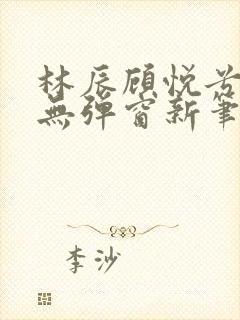 林辰顾悦
無彈窗新筆
李沙